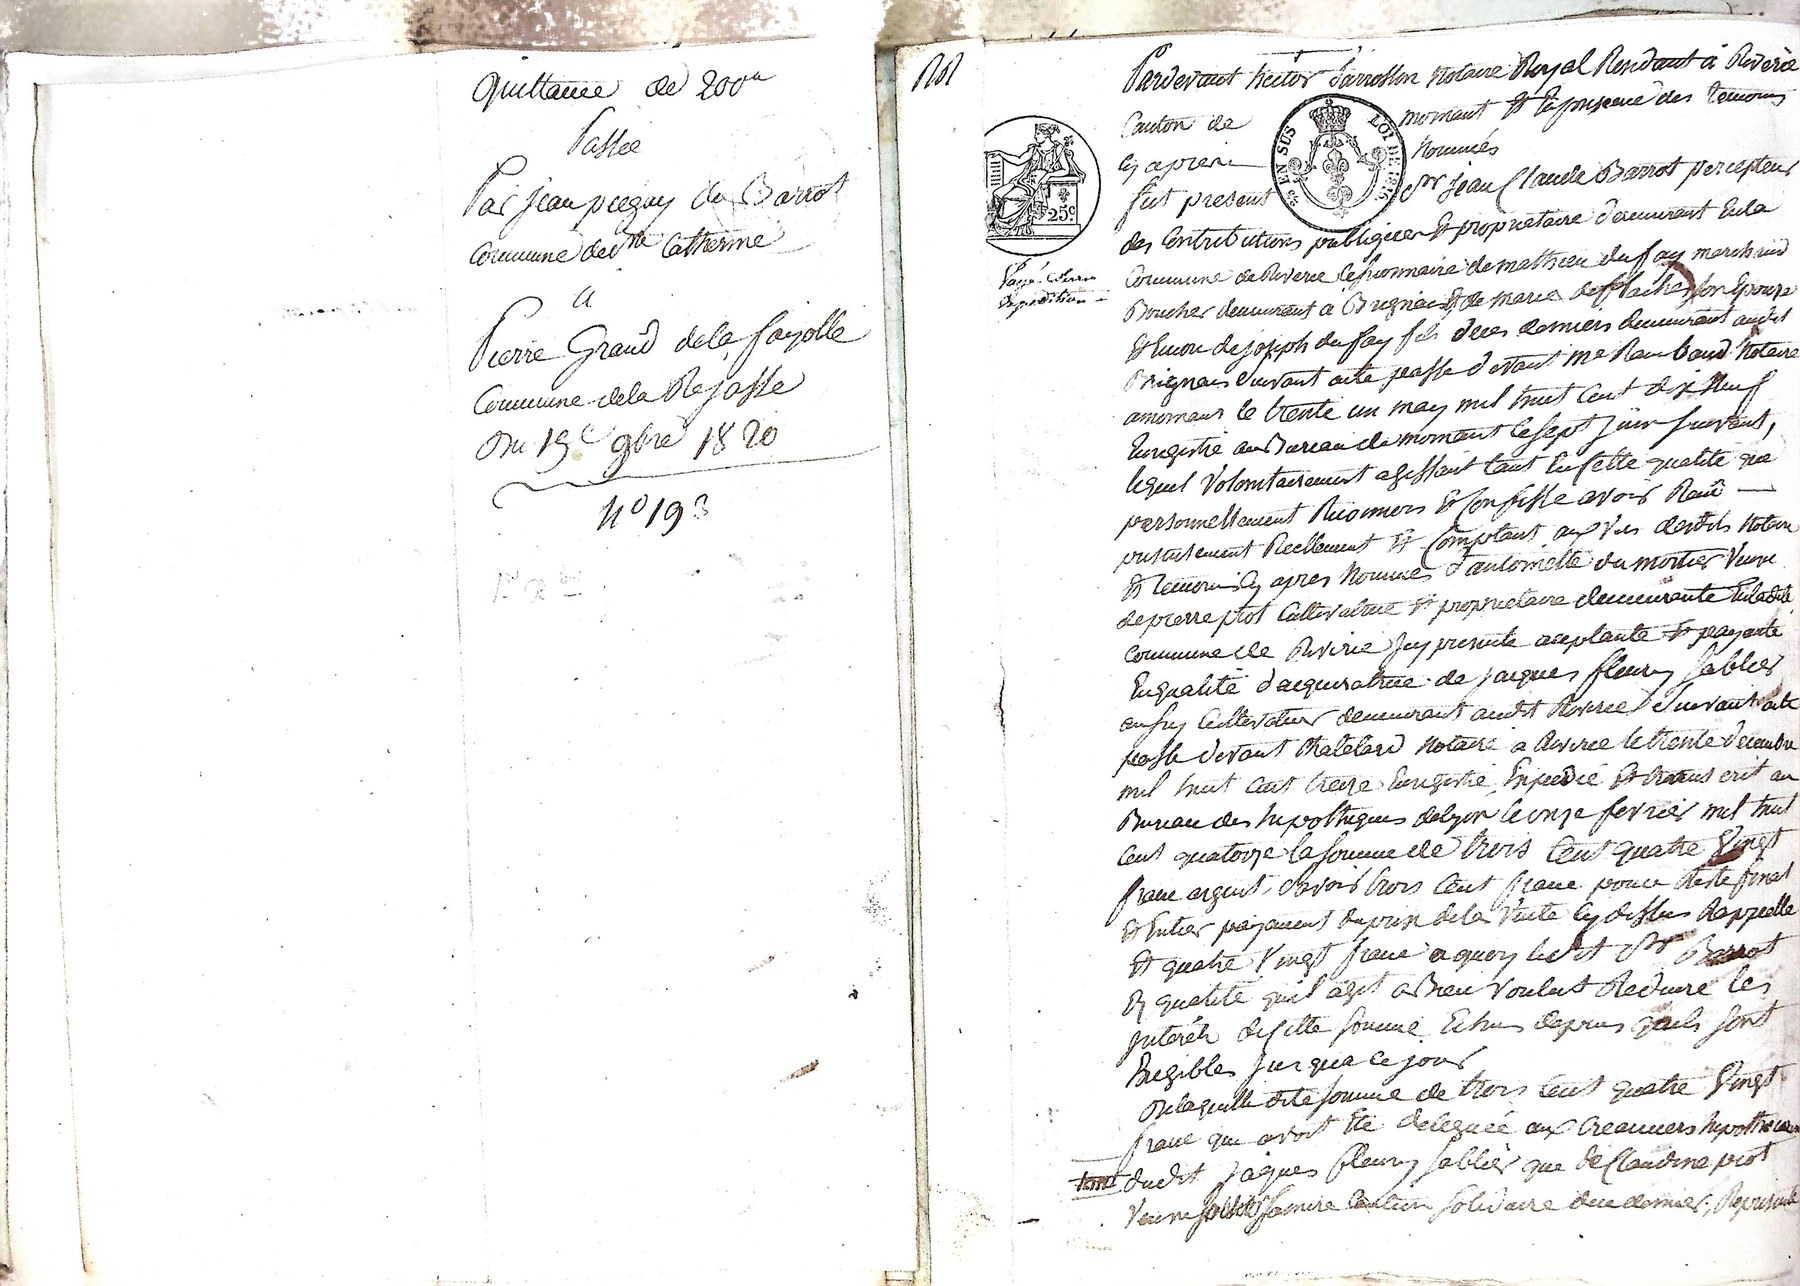 Quittance de 200ll
Passée
Par jean pregny du Barrot
commune de Ste Catherine
a
Pierre Graud dela fayolle
Commune dela Rajasse
Du 15e 9bre 1820
N° 193
Pardevant hector Jarrosson Notaire Royal Residant à Riverie
Canton de mornant Et En presence des temoins
cy après nommés
fut present Sr jean Claude Barrot percepteur
EN SUS LOI DE 1816
25c
des Contributions publiques Et proprietaire demeurant En la
Commune de Riverie Cessionnaire de mathieu du fay marchand
Boucher demeurant à Brignais Et de marie deflache son Epouse
Et Encore de joseph du fay fils de ces derniers demeurant audit
Brignais suivant acte passé devant me Raimbaud Notaire
a mornant le trente un may mil huit Cent dix Neuf
Enregistré au Bureau de mornant le sept juin suivant,
lequel Volontairement agissant tant En cette qualité que
personnellement Reconnois Et Confesse avoir Reçu
presentement Reellement Et Comptant aux Vus desdits Notaire
Et temoins cy apres Nommés d'antoinette du mortier Veuve
de pierre piot Cultivatrice Et proprietaire demeurante En ladite
Commune de Riverie Icy presente aceptante Et payante
En qualité d'acqueratrice de jacques fleury sablier
cultivateur demeurant audit Riverie suivant acte
passé devant Notaire a Riverie le trente decembre
mil huit Cent treize Enregistré, Expedié Et transcrit au
Bureau des hipotheques de lyon le onze fevrier mil huit
Cent quatorze la somme de trois Cent quatre Vingt
franc argent, savoir trois Cent franc pour Reste final
Et Entier payement du prix de la Vente cy dessus Rappellé
Et quatre Vingt franc a quoy ledit Sr Barrot
En qualité quil agit a Bien Voulut Reduire les
Interéts de cette somme Echus depuis quils sont
Exigibles jusqua ce jour
De laquelle dite somme de trois Cent quatre Vingt
franc qui avoit Eté deleguée aux Creanciers hypothecaires
dudit jaques fleury sablier que de Claudine piot
Veuve sa mere Caution solidaire de ce dernier,
Payé
Expedition